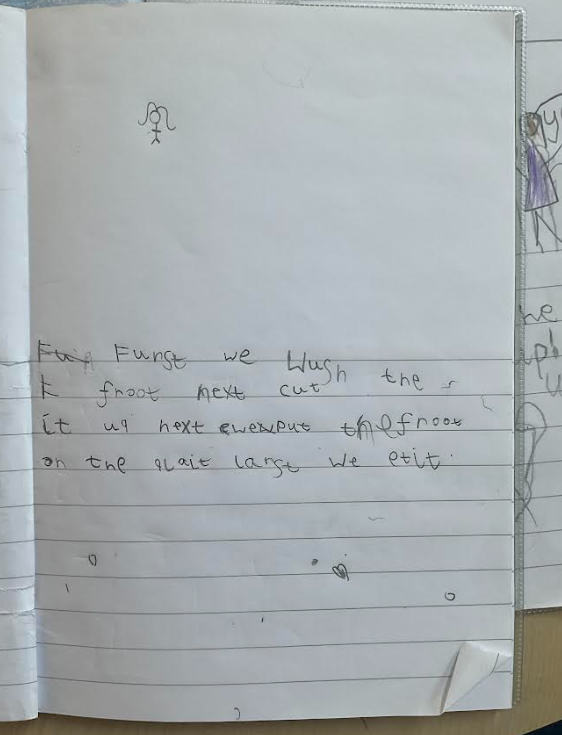 Furgt we Wush the
froot next cut
it uq next we put the froot
on the qlait largt we etit.
he